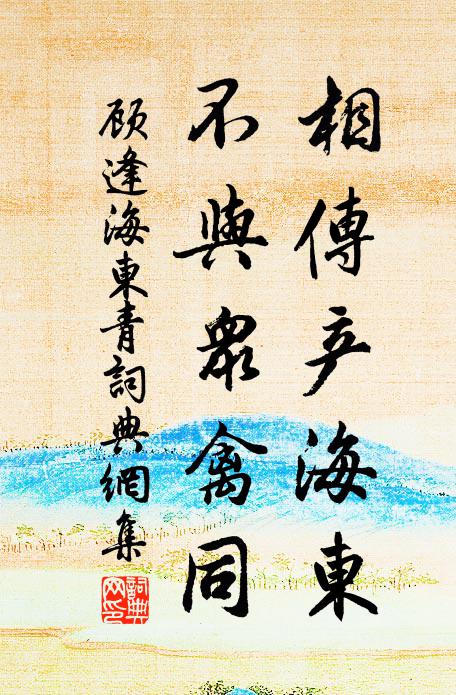 相傳产海東
不與眾禽同
顾逢海東青詞典網集
詞典